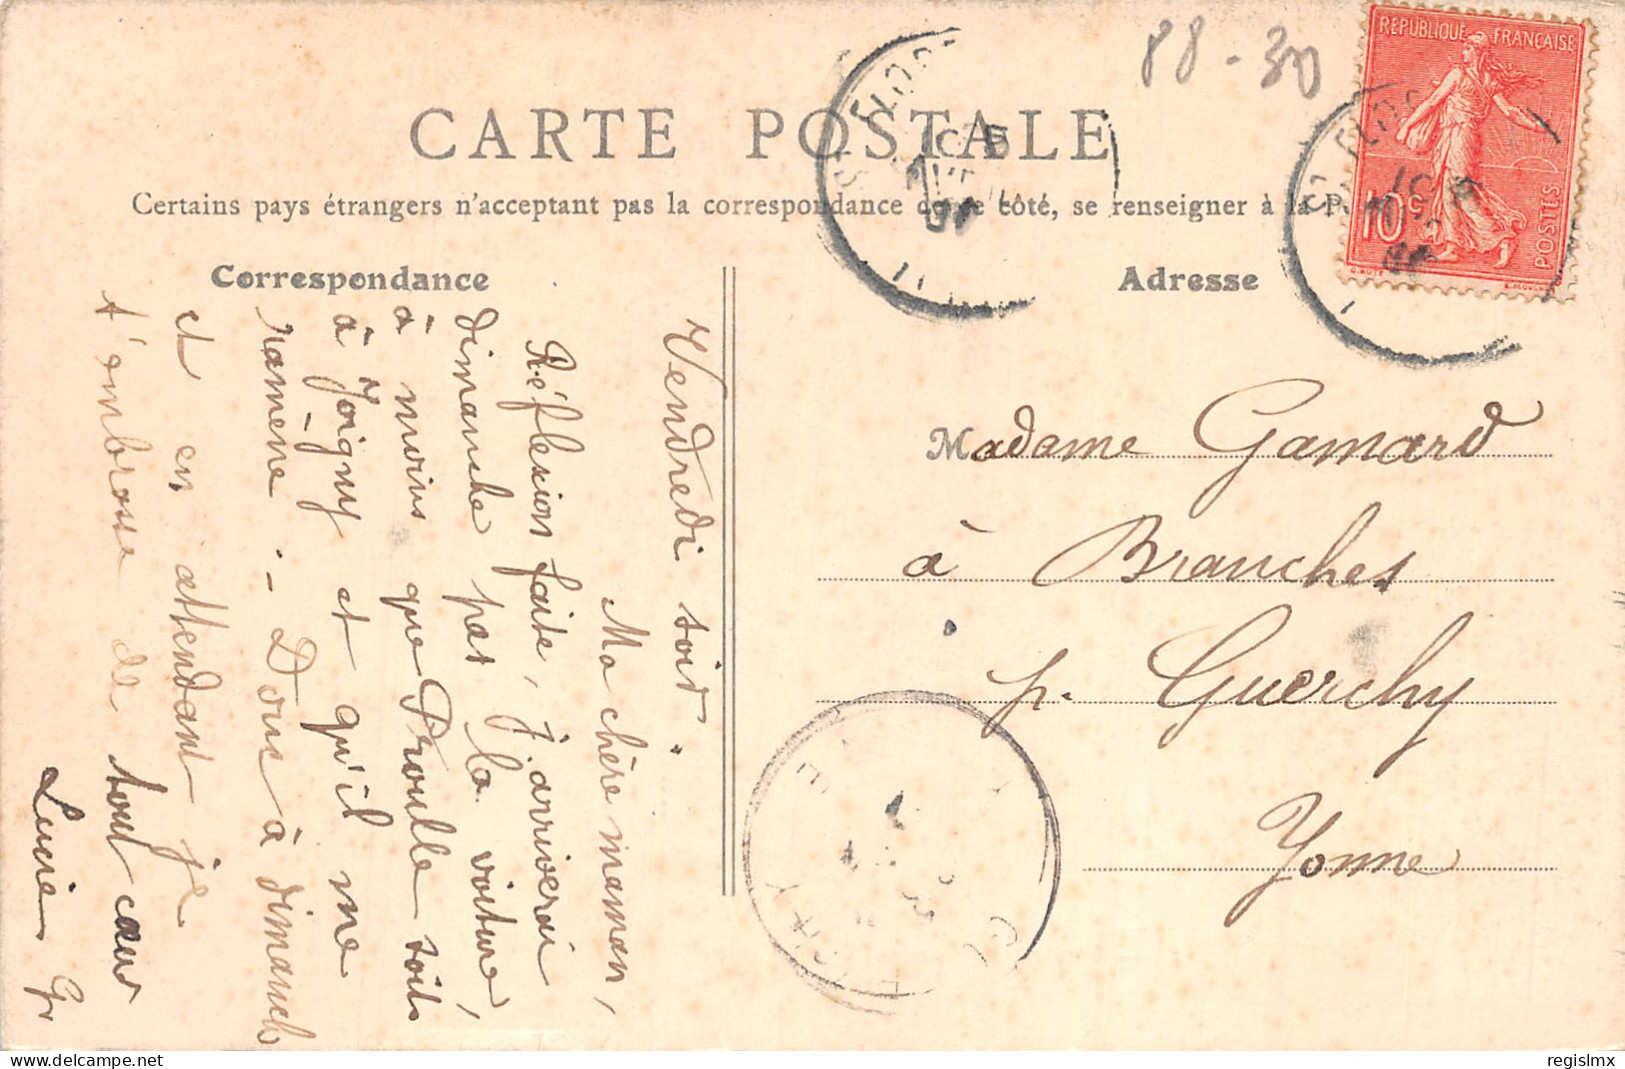 88-30
RÉPUBLIQUE FRANÇAISE
10c
POSTES
CARTE POSTALE
Certains pays étrangers n'acceptant pas la correspondance de ce côté, se renseigner à la P
Correspondance
Adresse
Vendredi soir.
Ma chère maman,
Réflexion faite, j'arriverai
dimanche pas la voiture,
à moins que Proulle soit
à Joigny et qu'il me
ramène. - Donc à dimanch
et en attendant je
t'embrasse de tout cœur
Lucie G
Madame Gamard
à Branches
p. Guerchy
Yonne
regislmx